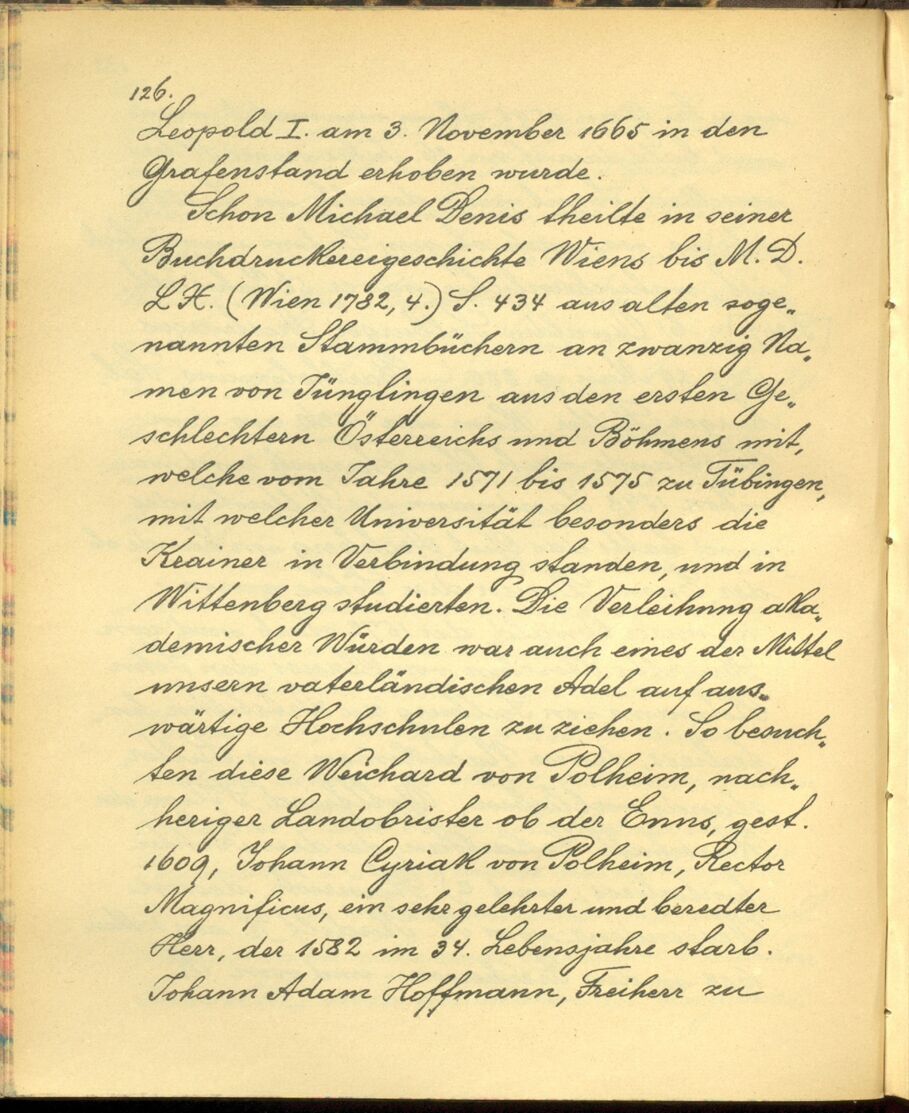 126.
Leopold I. am 3. November 1665 in den
Grafenstand erhoben wurde.
Schon Michael Denis theilte in seiner
Buchdruckereigeschichte Wiens bis M. D.
LX. (Wien 1782, 4.) S. 434 aus alten soge„
nannten Stammbüchern an zwanzig Na„
men von Jünglingen aus den ersten Ge„
schlechtern Österreichs und Böhmens mit,
welche vom Jahre 1571 bis 1575 zu Tübingen,
mit welcher Universität besonders die
Krainer in Verbindung standen, und in
Wittenberg studierten. Die Verleihung aka„
demischer Würden war auch eines der Mittel
unsern vaterländischen Adel auf aus„
wärtige Hochschulen zu ziehen. So besuch„
ten diese Weichard von Polheim, nach„
heriger Landobrister ob der Enns, gest.
1609, Johann Cyriak von Polheim, Rector
Magnificus, ein sehr gelehrter und beredter
Herr, der 1582 im 34. Lebensjahre starb.
Johann Adam Hoffmann, Freiherr zu